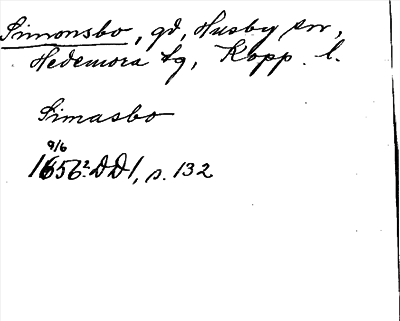 Simonsbo, gd, Husby sn,
Hedemora tg, Kopp. l.
Simasbo
9/6
1656² DD1, s. 132